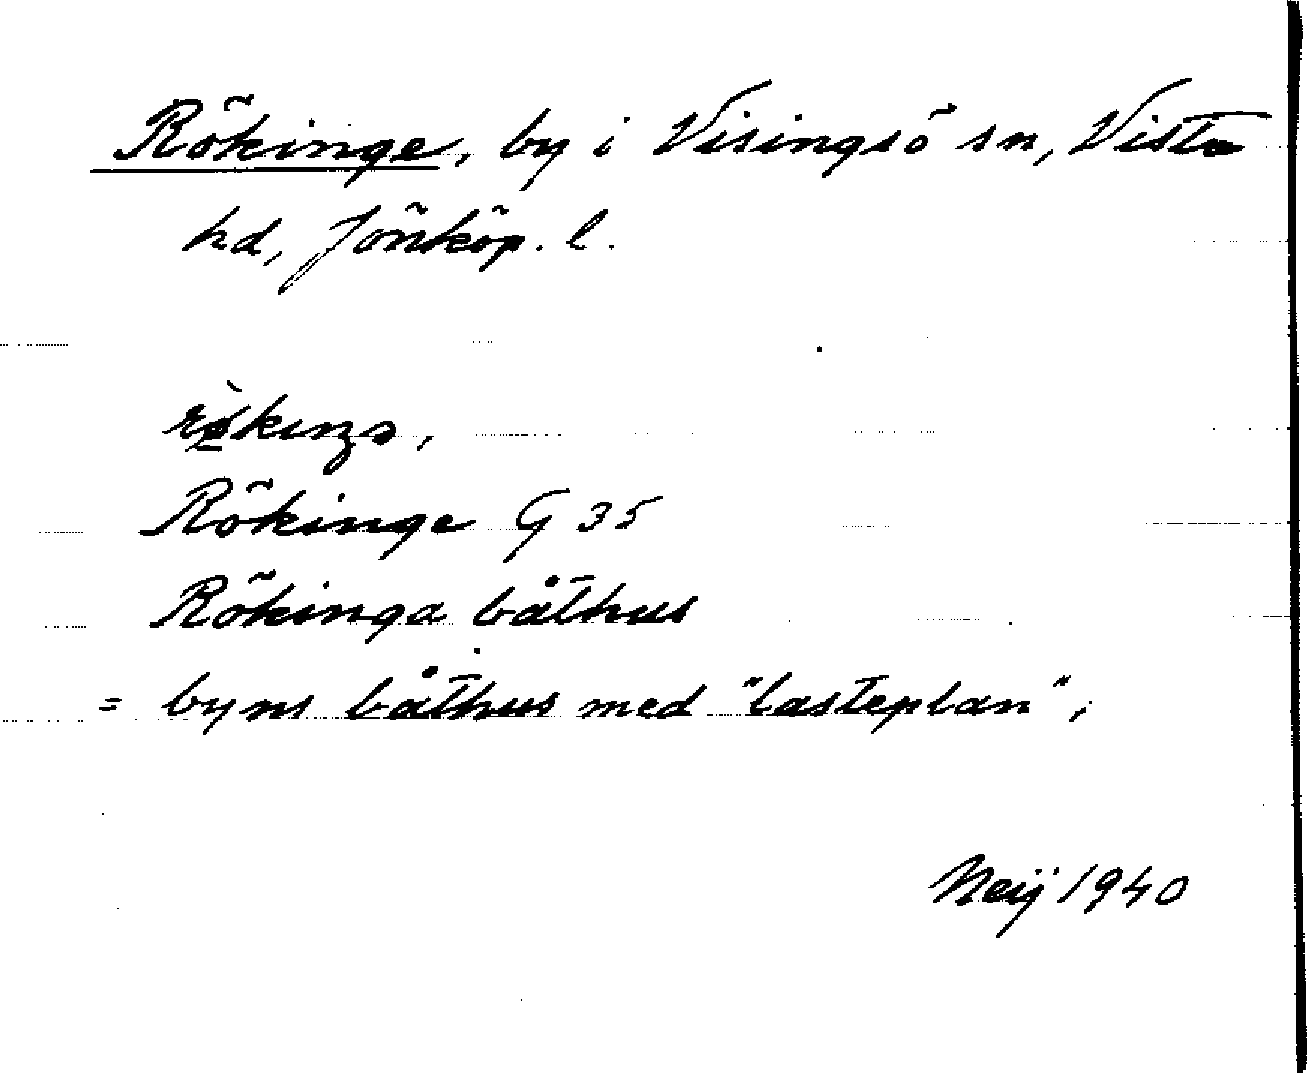 Rökinge, by i Visingsö sn, Vista
hd, Jönköp. l.
Rökinge G 35
Rökinga båthus
= byns båthus med "lasteplan",
Neij 1940